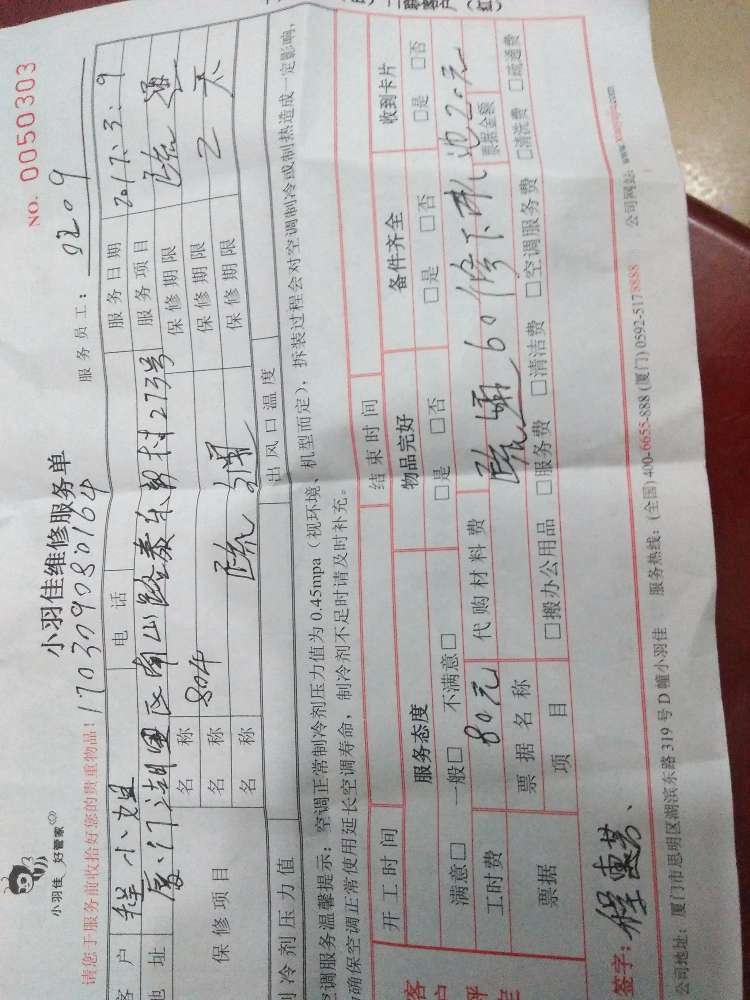 小羽佳 好管家
小羽佳维修服务单
NO. 0050303
请您于服务前收拾好您的贵重物品！17030908 0164
服务员工： 9209
客户 程小姐 电话 服务日期 2017.3.9
地址 厦门湖里区南山路泰东新村273号 服务项目
804
保修项目 名称 保修期限
名称 保修期限
名称 保修期限
制冷剂压力值 出风口温度
空调服务温馨提示：空调正常制冷剂压力值为 0.45mpa（视环境、机型而定），拆装过程会对空调制冷或制热造成一定影响，
为确保空调正常使用延长空调寿命，制冷剂不足时请及时补充。
开工时间 结束时间
服务态度 物品完好 备件齐全 收到卡片
满意□ 一般□ 不满意□ □是 □否 □是 □否 □是 □否
工时费 80元 代购材料费 60 修下水 池20元
票据 票据名称 票据金额
项目 □搬办公用品 □服务费 □清洁费 □空调服务费 □清洗费 □疏通费
签字：程惠芳
公司地址：厦门市思明区湖滨东路 319 号 D 幢小羽佳 服务热线：(全国) 400-6655-888 (厦门) 0592-5178888 公司网站：